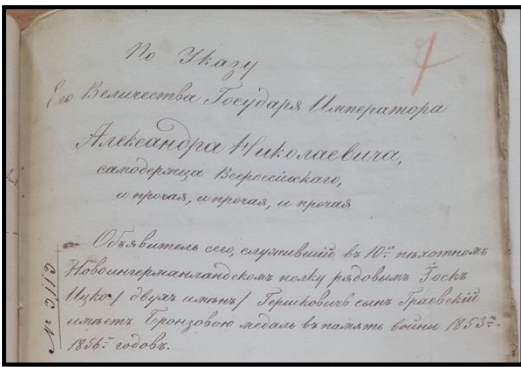 По Указу
Его Величества Государя Императора
Александра Николаевича,
самодержца Всероссійскаго,
и прочая, и прочая, и прочая
Объявитель сего, служившій въ 10м пѣхотномъ
Новоингерманландскомъ полку рядовымъ Іоскъ
Ицко / двухъ имянъ / Гершковичъ сынъ Граевскій
имѣетъ Бронзовою медаль въ память войны 1853го-
1856го годовъ.
№ 3113